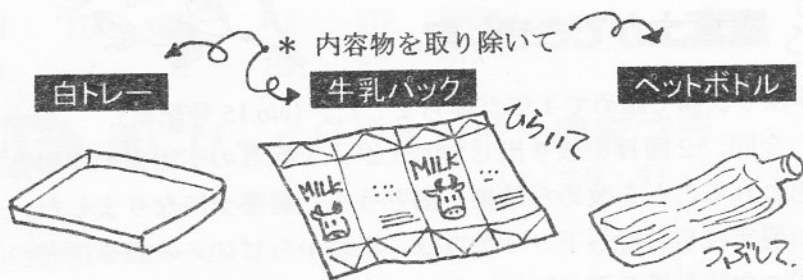 * 内容物を取り除いて
白トレー
牛乳パック
ペットボトル
ひらいて
MILK
MILK
つぶして.